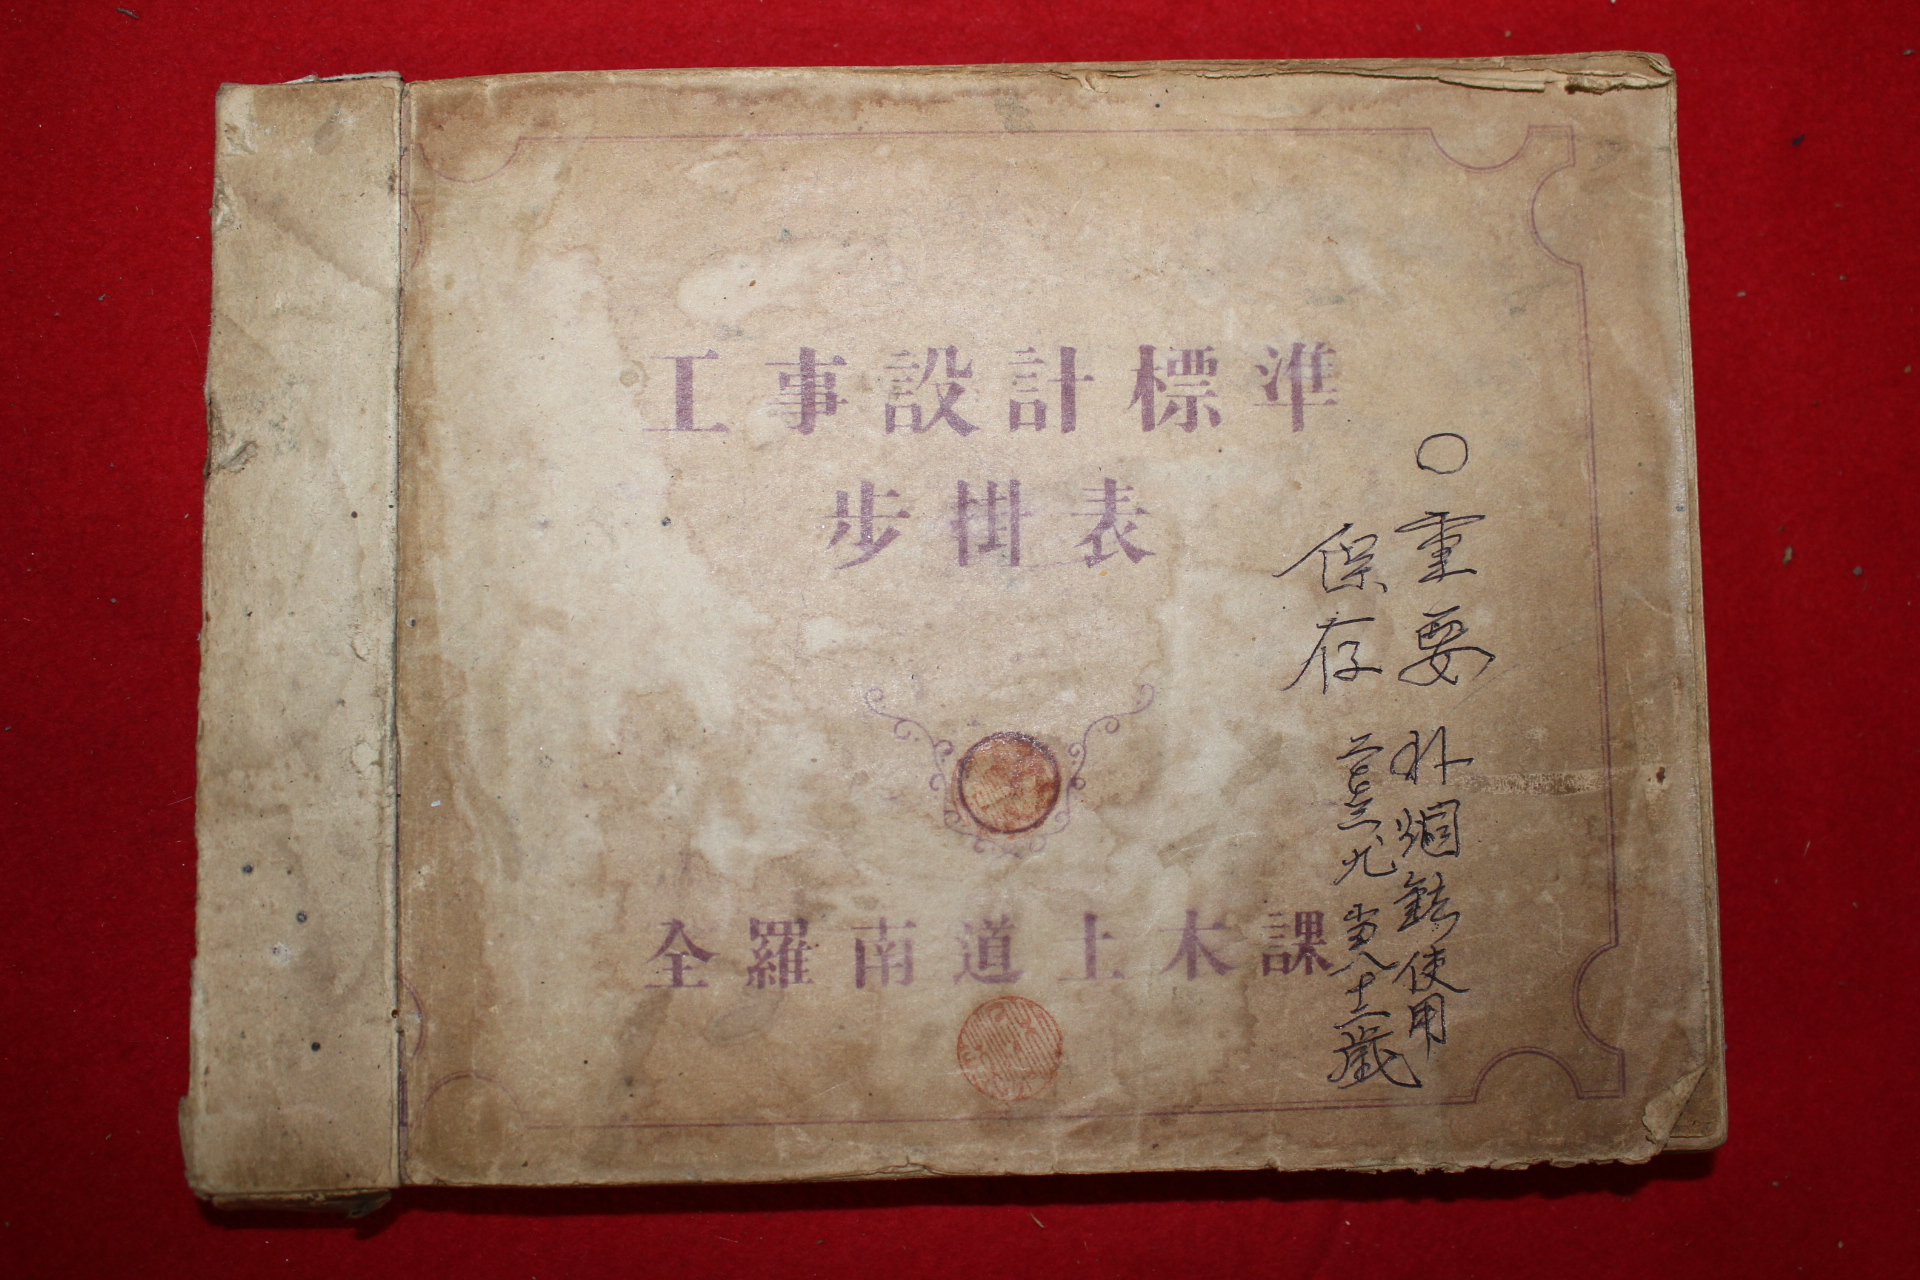 工事設計標準
步掛表
全羅南道土木課
○重要
保存
朴炯鉉使用
九 當八十二歲